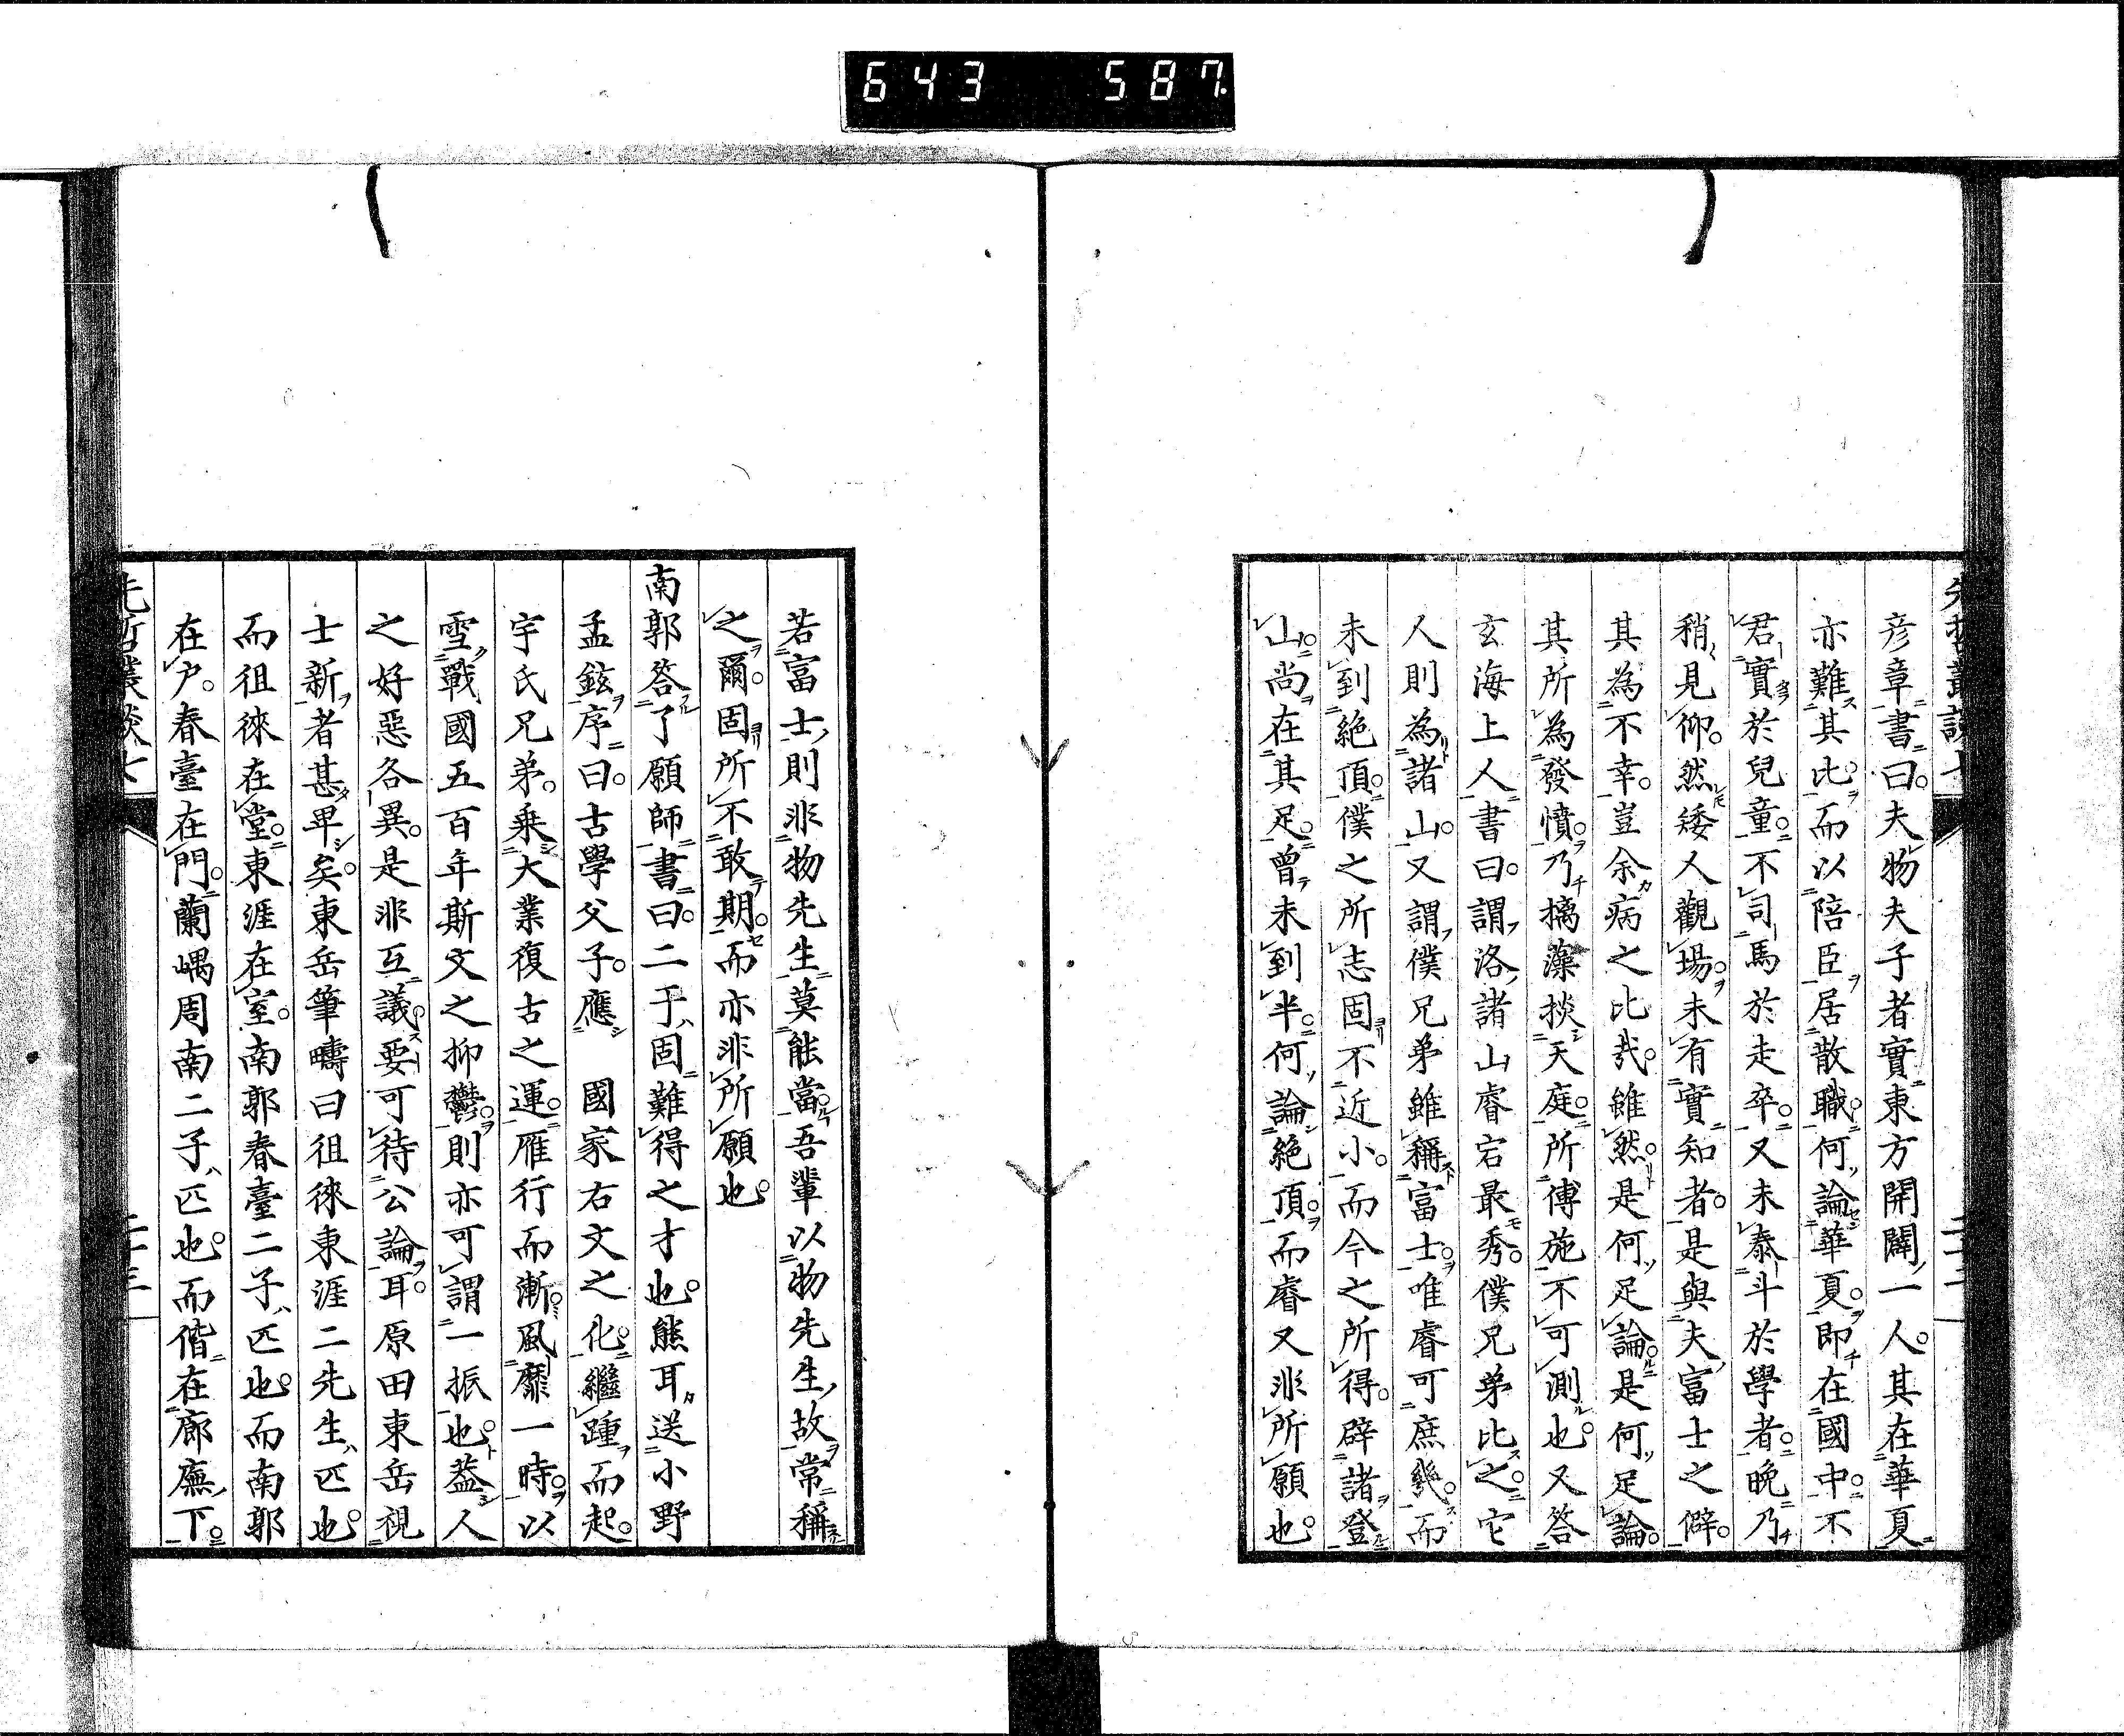 643 587.
先哲叢談七
彦章書曰。夫物夫子者實東方開闢一人。其在華夏
亦難其比。而以陪臣居散職。何論華夏。即在國中。不
君實於兒童。不司馬於走卒。又未泰斗於學者。晚乃
稍見仰。然矮人觀場。未有實知者。是與夫富士之僻。
其為不幸。豈余病之比哉。雖然。是何足論。是何足論。
其所為發憤。乃摛藻掞天庭。所傅施不可測也。又答
玄海上人書曰。謂洛諸山睿宕最秀。僕兄弟比之。它
人則為諸山。又謂僕兄弟雖稱富士。唯睿可庶幾。而
未到絕頂。僕之所志固不近小。而今之所得。辟諸登
山。尚在其足。曾未到半。何論絕頂。而睿又非所願也。
若富士則非物先生莫能當。吾輩以物先生故常稱
之爾。固所不敢期。而亦非所願也。
南郭答了願師書曰。二子固難得之才也。熊耳送小野
孟鉉序曰。古學父子。應 國家右文之化。繼踵而起。
宇氏兄弟。乘大業復古之運。雁行而漸。風靡一時。以
雪戰國五百年斯文之抑鬱。則亦可謂一振也。蓋人
之好惡各異。是非互議。要可待公論耳。原田東岳視
士新者甚卑矣。東岳筆疇曰徂徠東涯二先生匹也。
而徂徠在堂。東涯在室。南郭春臺二子匹也。而南郭
在户。春臺在門。蘭嵎周南二子匹也。而偕在廊廡下。
先哲叢談七